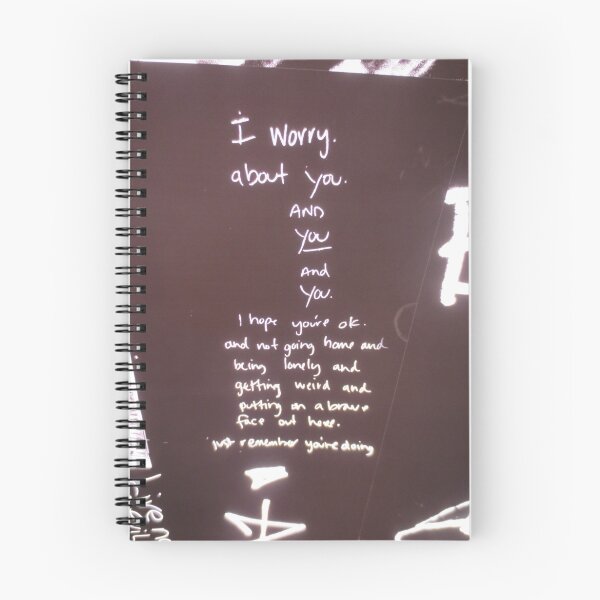 I worry.
about you.
AND
YOU
And
You.
I hope you're ok.
and not going home and
being lonely and
getting weird and
putting on a brave
face out here.
just remember you're doing